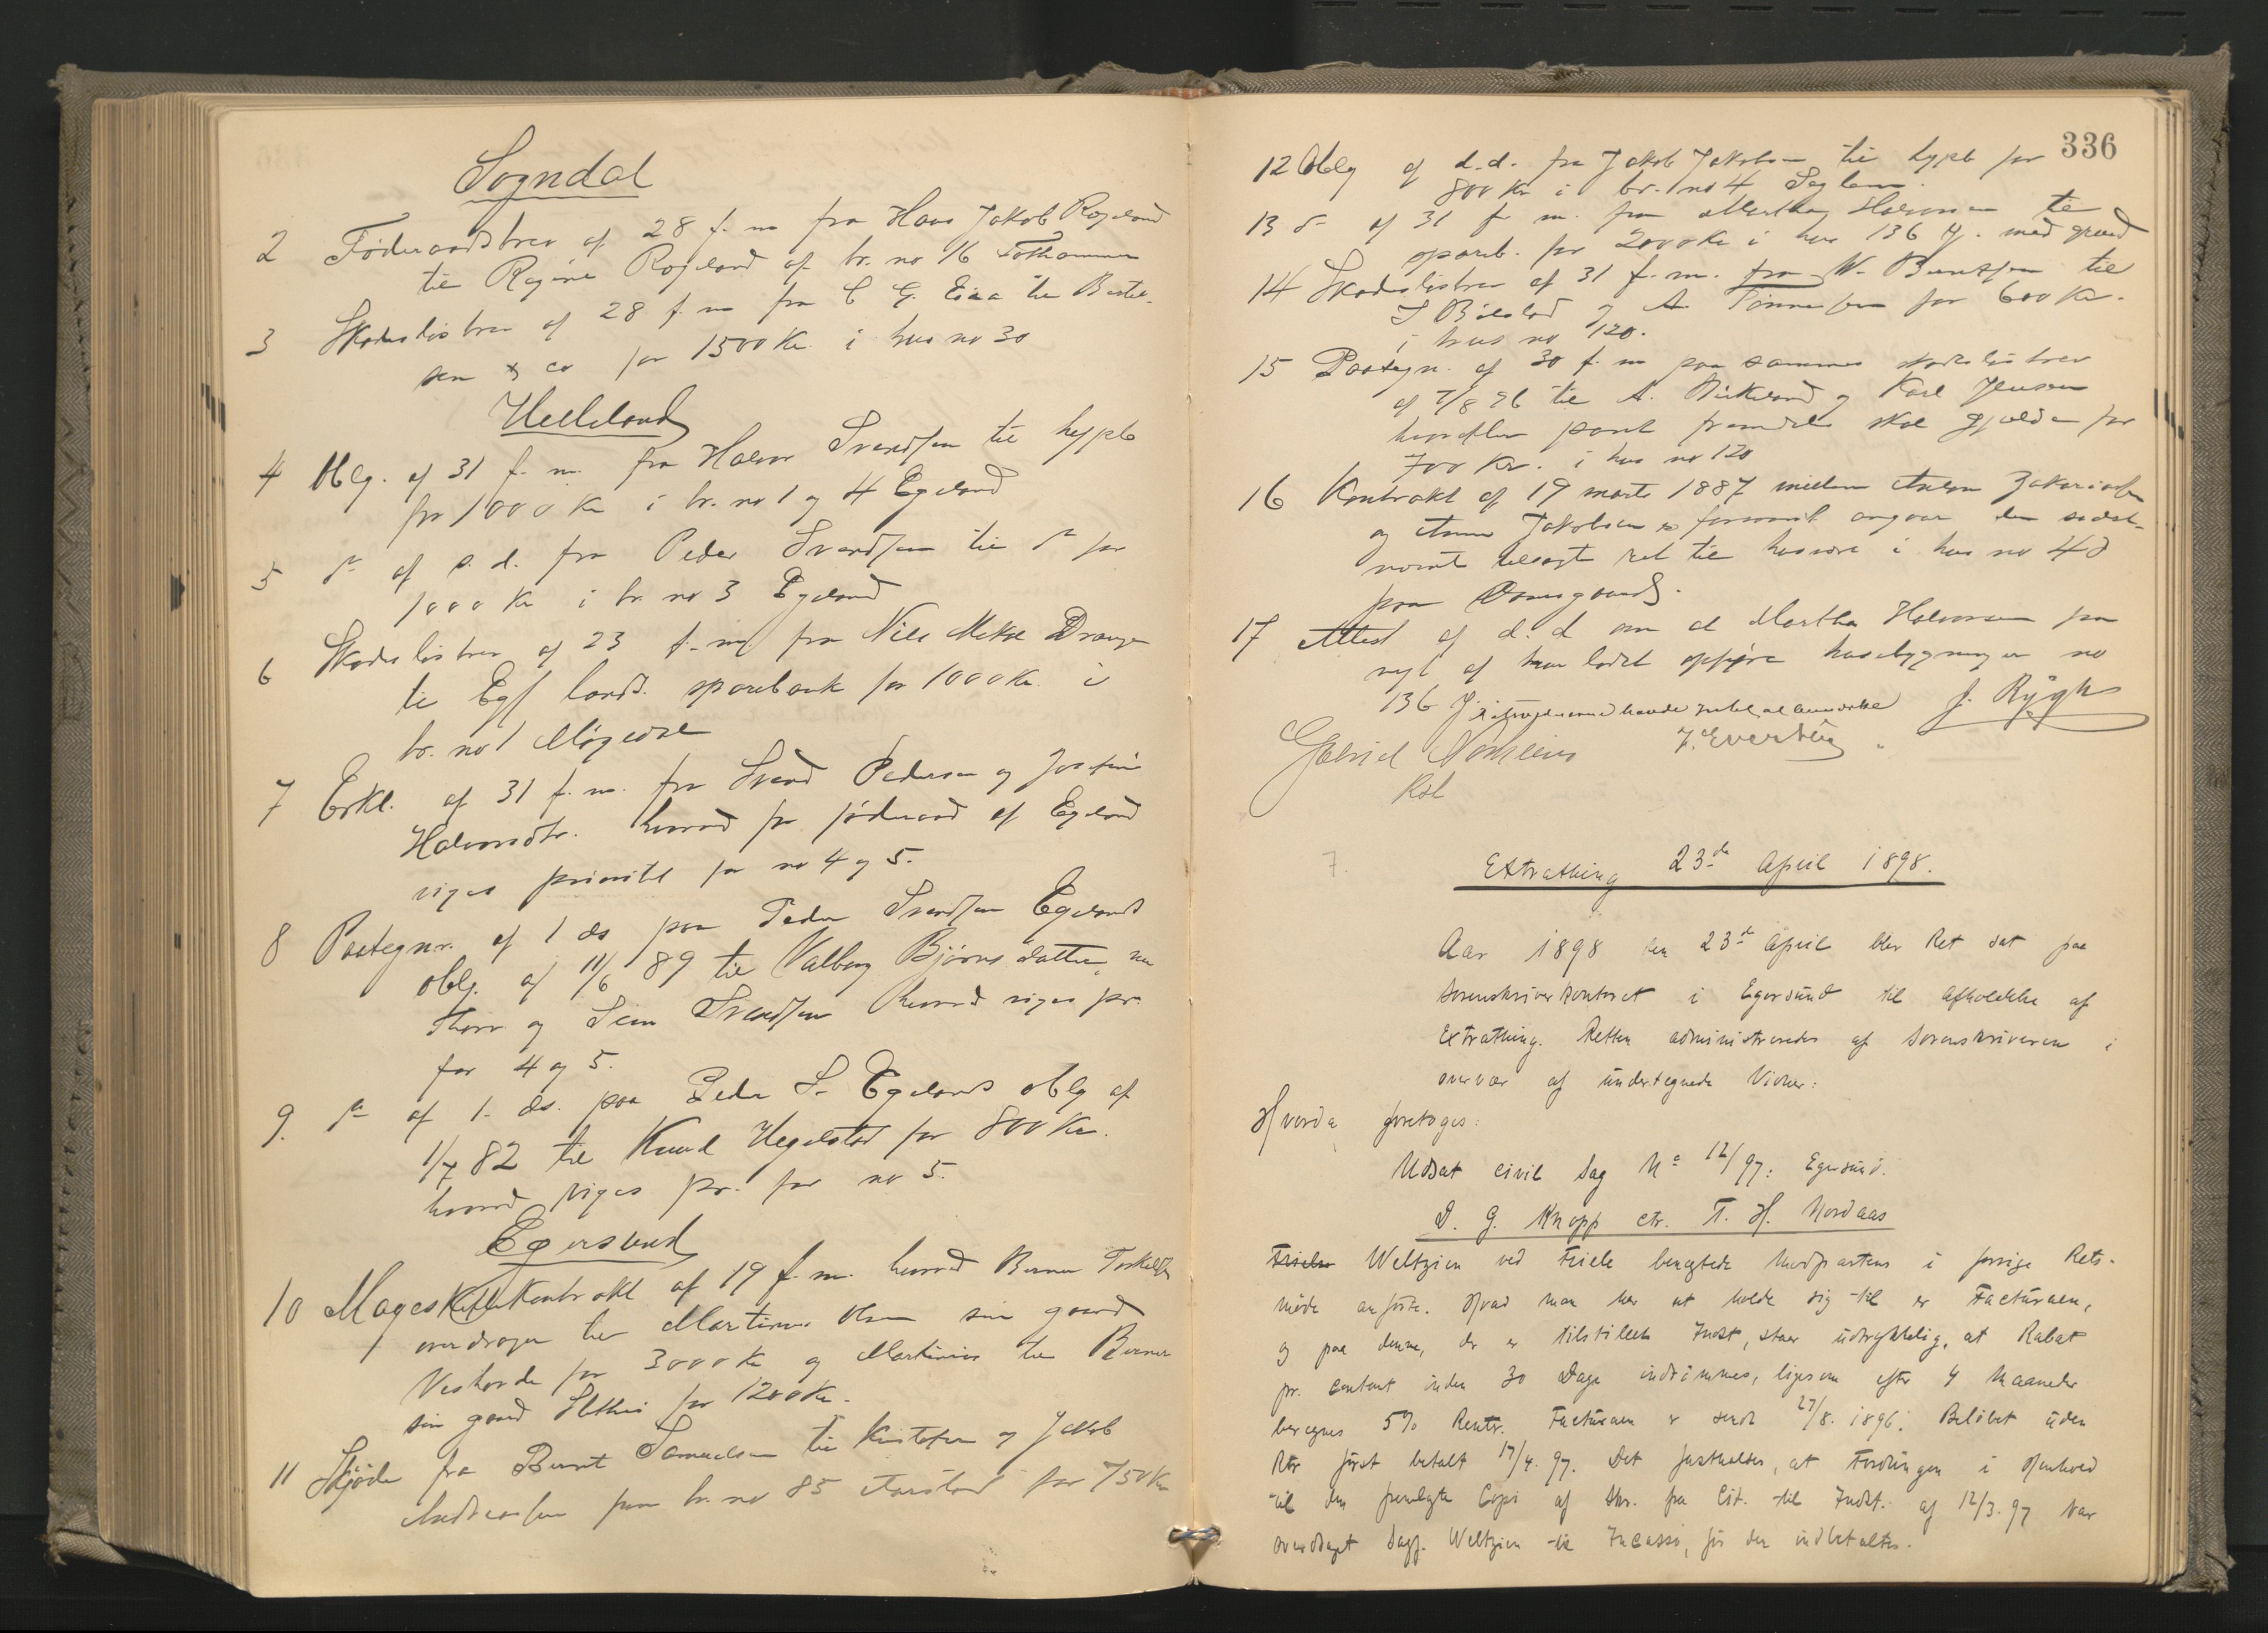 Sogndal
2 Føderaadsbrev af 28 f. m. fra Hans Jakob Rogeland
til Regine Rogeland af br. no 16
3 Skadesløsbrev af 28 f. m. fra C G. Eiaa til Bertel-
sen & co for 1500 Kr. i hus no 30
Helleland
4 Oblg. af 31 f. m. fra Halvor Svendsen til hypb
for 1000 Kr i br. no 1 og 4 Egeland
5 do af s. d. fra Peder Svendsen til do for
1000 Kr i br. no 3 Egeland
6 Skadesløsbrev af 23 f. m. fra Nils Mikal Drange
til Egs landd. sparebank for 1000 Kr. i
br. no 1 Møgedal
7 Erkl. af 31 f. m. fra Svend Pedersen og
Halvorsdtr. hvorved for føderaad af Egeland
viges prioritet for no 4 og 5.
8 Paategn. af 1 ds paa Peder Svendsen Egelands
oblg. af 11/6 89 til Valborg Bjørnsdatter, nu
Thore og Svendsen hvorved viges pr.
for 4 og 5.
9. do af 1. ds. paa Peder S. Egelands oblg af
1/7 82 til Knud Hegelstad for 800 Kr.
hvorved viges pr. for no 5.
Egersund
10 Mageskiftekontrakt af 19 f. m. hvorved Berner Torkelsen
overdrager til Martinius Olsen sin gaard
for 3000 Kr og Martinius til Berner
sin gaard for 1200 Kr.
11 Skjøde fra Bernt Samuelsen til Kristofer og Jakob
Andreassen paa br. no 85 Aarstad for 750 Kr
336
12 Oblg af d. d. fra Jakob Jakobsen til hypb for
800 Kr i br. no 4
13 do af 31 f. m. fra Martha Halvorsen til
spareb. for 2000 Kr i hus 136 H. med grund
14 Skadesløsbrev af 31 f. m. fra W. Berntsen til
S Bilstad og A. Tønnessen for 600 Kr.
i hus no 120.
15 Paategn. af 30 f. m. paa sammes skadesløsbrev
af 7/8 96 til A. Birkeland og Karl Jensen
hvorefter pant fremdeles skal gjælde for
700 Kr. i hus no 120
16 Kontrakt af 19 marts 1887 mellem Zakariasen
og Anna Jakobsen forsaavidt angaar den sidst-
nævnte tilsagte ret til husvære i hus no 48
paa Damsgaard.
17 Attest af d. d om at Martha Halvorsen paa
nyt af hun ladet opføre husebygningen no
136 J. Rygh
Gabriel J. Evertsen
Kst
7.
Extrathing 23de April 1898.
Aar 1898 den 23de April blev Ret sat paa
Sorenskriverkontoret i Egersund til Afholdelse af
Extrathing. Retten administreredes af Sorenskriveren i
overvær af undertegnede Vidner:
Hvorda foretoges:
Udsat civil Sag No 12/97: Egersund.
D. G. Knopp ctr. T. H. Nordaas
Weltzien ved Feiele benegtede Modpartens i forrige Rets-
møde anførte. Hvad man har at holde sig til er Facturaen,
og paa denne, der er tilstillet Indst, staar udtrykkelig, at Rabat
pr. contant inden 30 Dage indrømmes, ligesom efter 4 Maaneder
beregnes 5% Rente. Facturaen er sendt 27/8. 1896. Beløbet uden
Rtr først betalt 17/4. 97. Det fastholdes, at Fordringen i Henhold
til den fremlagte Copi af Skr. fra Cit. til Indst. af 12/3. 97 var
overdraget Sagf. Weltzien til Incasso, før den indbetaltes.